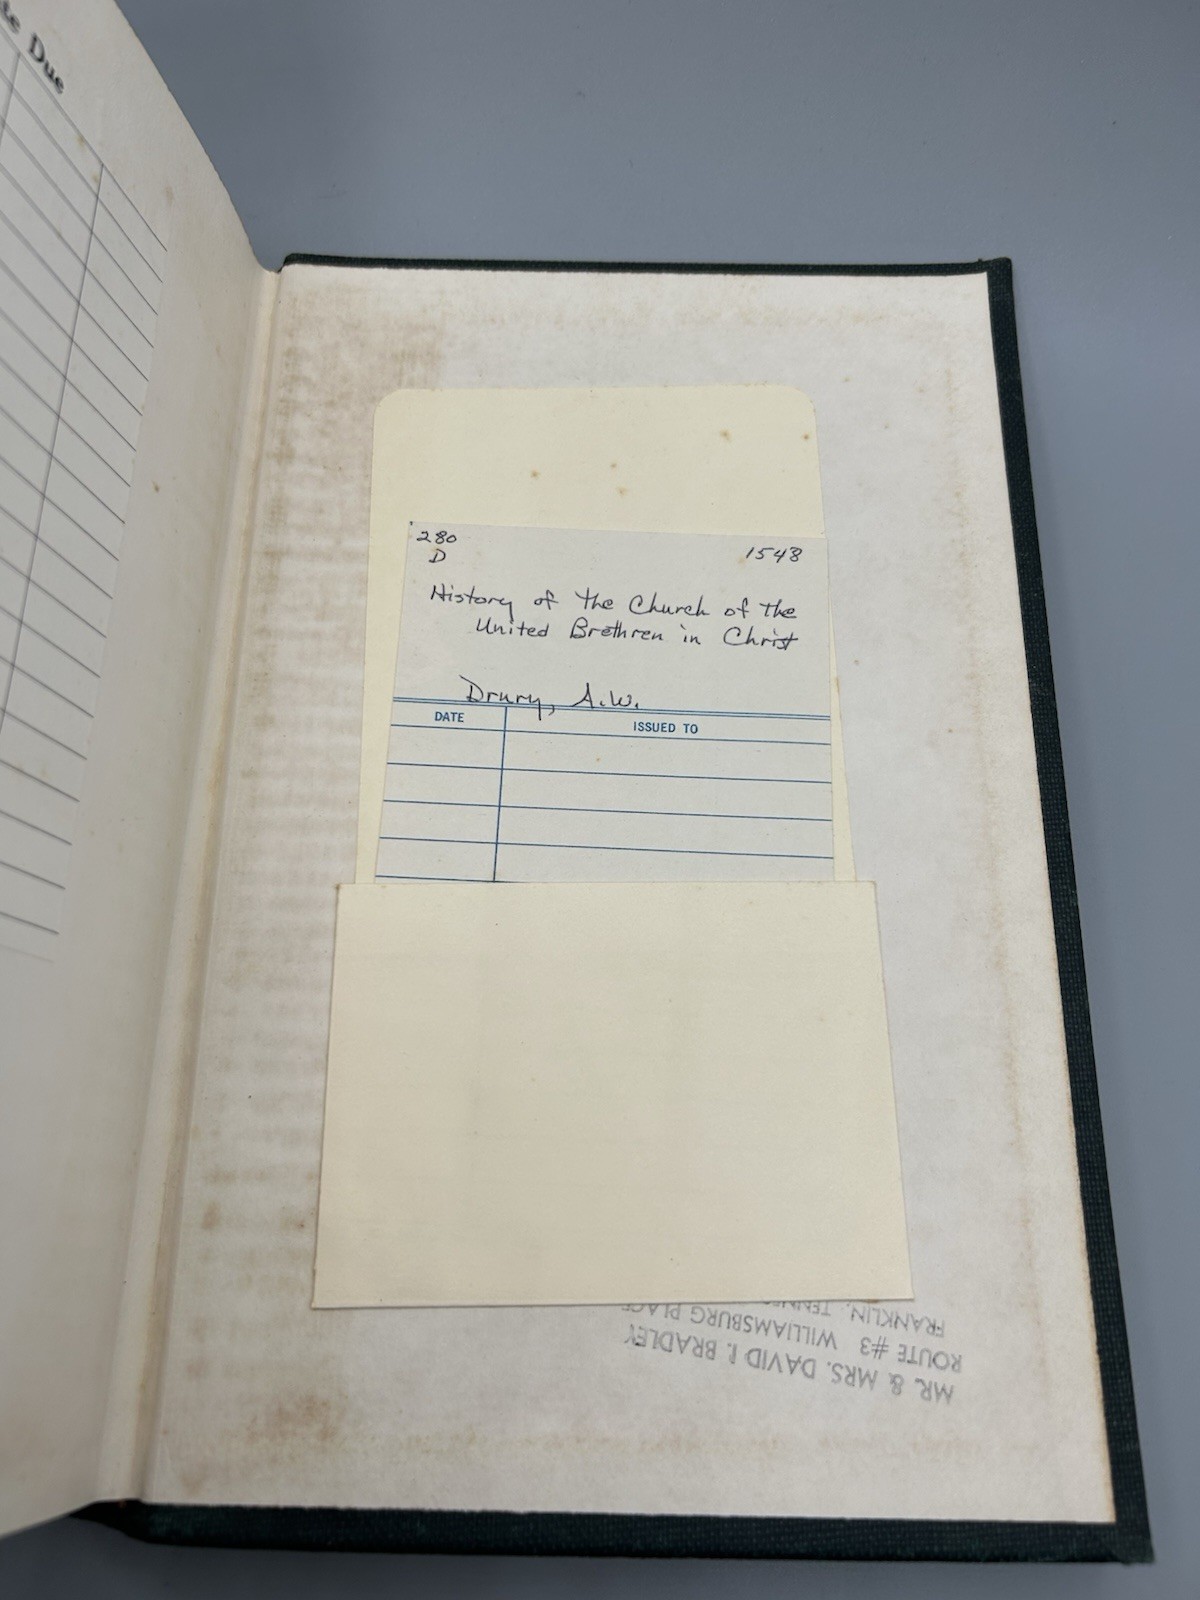 Due
280
D
1548
History of the Church of the
United Brethren in Christ
Drury, A.W.
DATE
ISSUED TO
MR. & MRS. DAVID I. BRADLEY
ROUTE #3 WILLIAMSBURG
FRANKLIN,